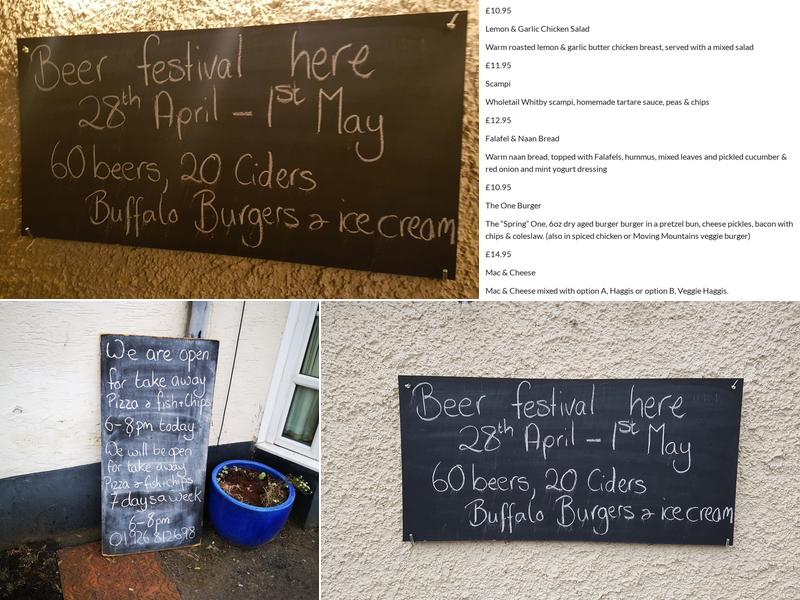 Beer festival here
28th April - 1st May
60 beers, 20 Ciders
Buffalo Burgers & ice cream
£10.95
Lemon & Garlic Chicken Salad
Warm roasted lemon & garlic butter chicken breast, served with a mixed salad
£11.95
Scampi
Wholetail Whitby scampi, homemade tartare sauce, peas & chips
£12.95
Falafel & Naan Bread
Warm naan bread, topped with Falafels, hummus, mixed leaves and pickled cucumber &
red onion and mint yogurt dressing
£10.95
The One Burger
The "Spring" One, 6oz dry aged burger burger in a pretzel bun, cheese pickles, bacon with
chips & coleslaw. (also in spiced chicken or Moving Mountains veggie burger)
£14.95
Mac & Cheese
Mac & Cheese mixed with option A, Haggis or option B, Veggie Haggis.
We are open
for take away
Pizza & fish+Chips
6-8pm today
We will be open
for take away
Pizza & fish+chips
7 days a week
6-8pm
01926 812698
Beer festival here
28th April - 1st May
60 beers, 20 Ciders
Buffalo Burgers & ice cream